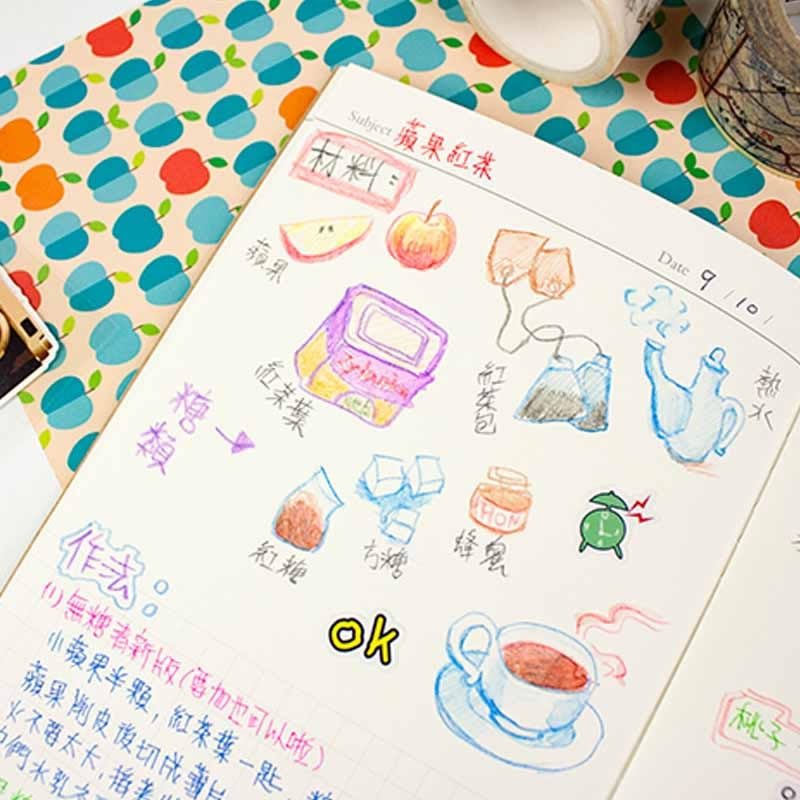 Subject 蘋果紅茶
Date 9/10/
材料：
蘋果
紅茶葉
紅茶包
熱水
糖類
紅糖
方糖
蜂蜜
HON
作法：
(1) 無糖清新版(要加也可以啦)
小蘋果半顆，紅茶葉一匙，
蘋果削皮後切成薄片
火不要太大，
ok
桃子